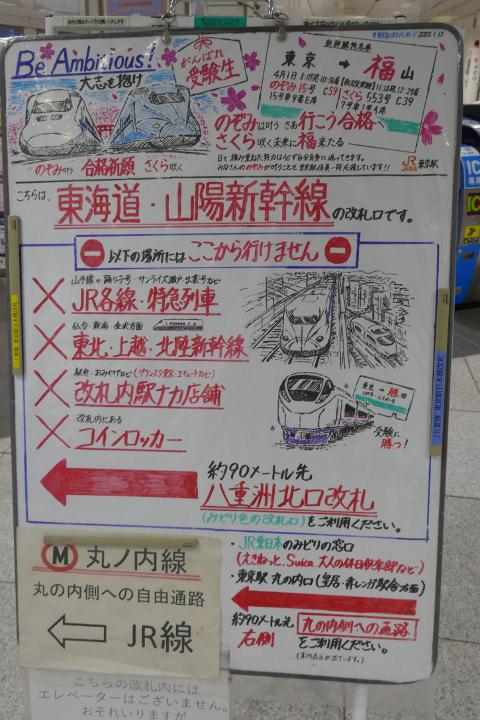 Be Ambitious!
大志を抱け
がんばれ
受験生
新幹線特急券
東京→福山
のぞみ15号
さくら553号 C.39
15号車9番E席
7号車1番A席
のぞみは叶う さあ行こう合格へ
さくら咲く未来に福来たる
のぞみ叶う 合格祈願 さくら咲く
JR東海 東京駅
こちらは、東海道・山陽新幹線の改札口です。
以下の場所にはここから行けません
JR各線・特急列車
仙台・新潟・金沢方面
東北・上越・北陸新幹線
改札内駅ナカ店舗
改札内にある
コインロッカー
東京→勝田
受験に
勝つ!
約90メートル先
八重洲北口改札
(みどり色の改札口)をご利用ください。
・JR東日本のみどりの窓口
(えきねっと、Suica、大人の休日倶楽部など)
・東京駅 丸の内口(皇居・赤レンガ駅舎方面)
約90メートル先
右側
丸の内側への通路
をご利用ください。
(案内表示が出ています。)
M 丸ノ内線
丸の内側への自由通路
JR線
こちらの改札内には
エレベーターはございません。
おそれいりますが